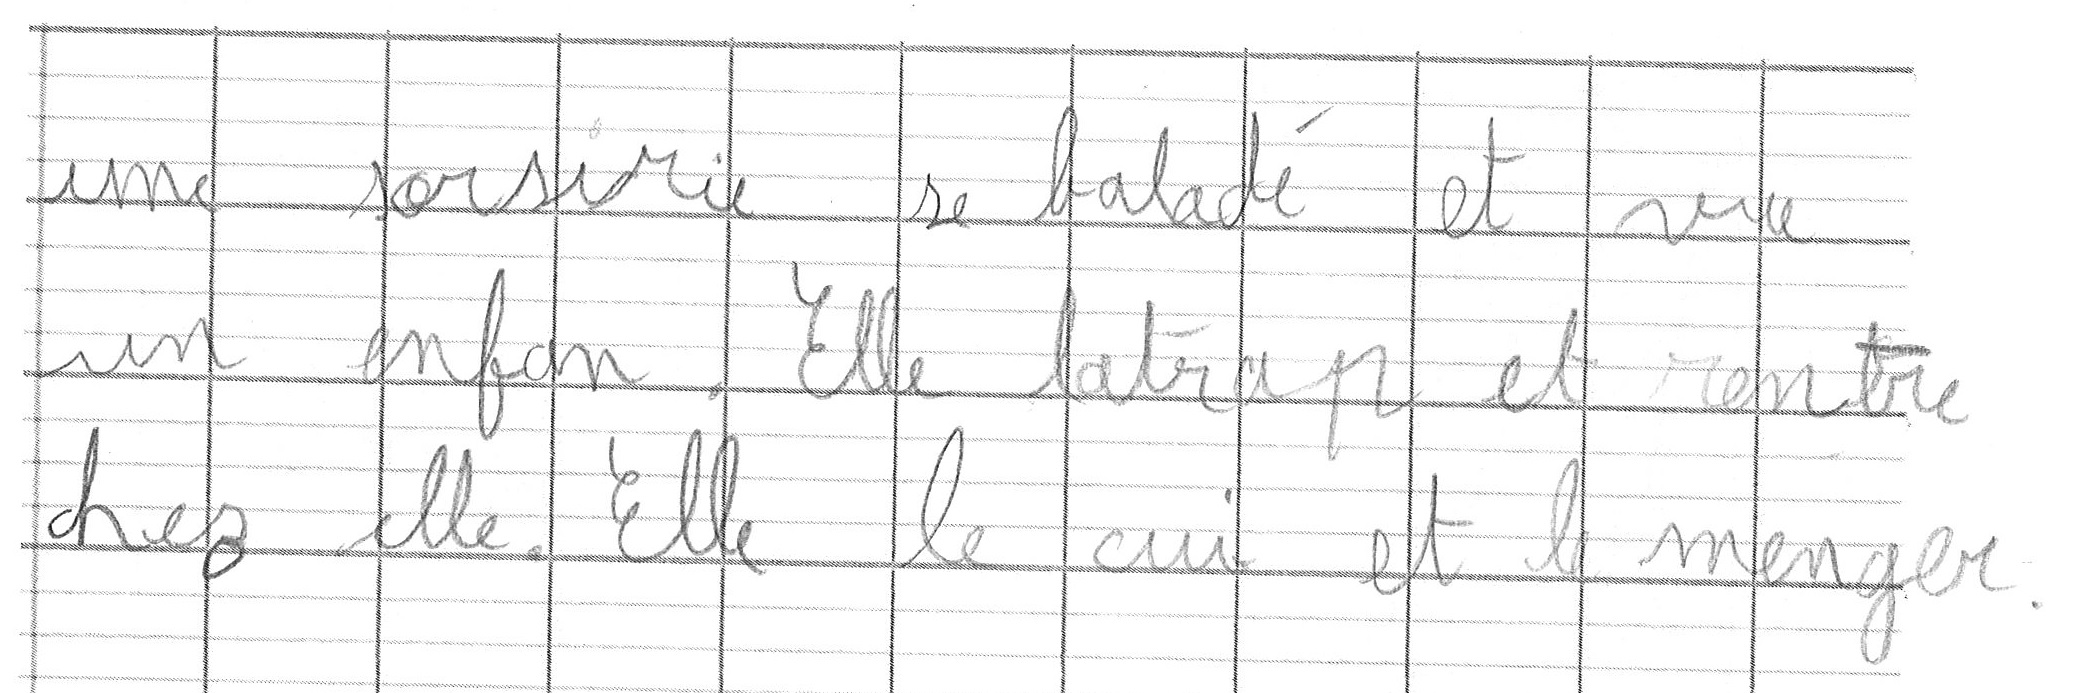 une sorsirie se baladé et vue
un enfan. Elle latrap et rentre
chez elle. Elle le cui et le menger.